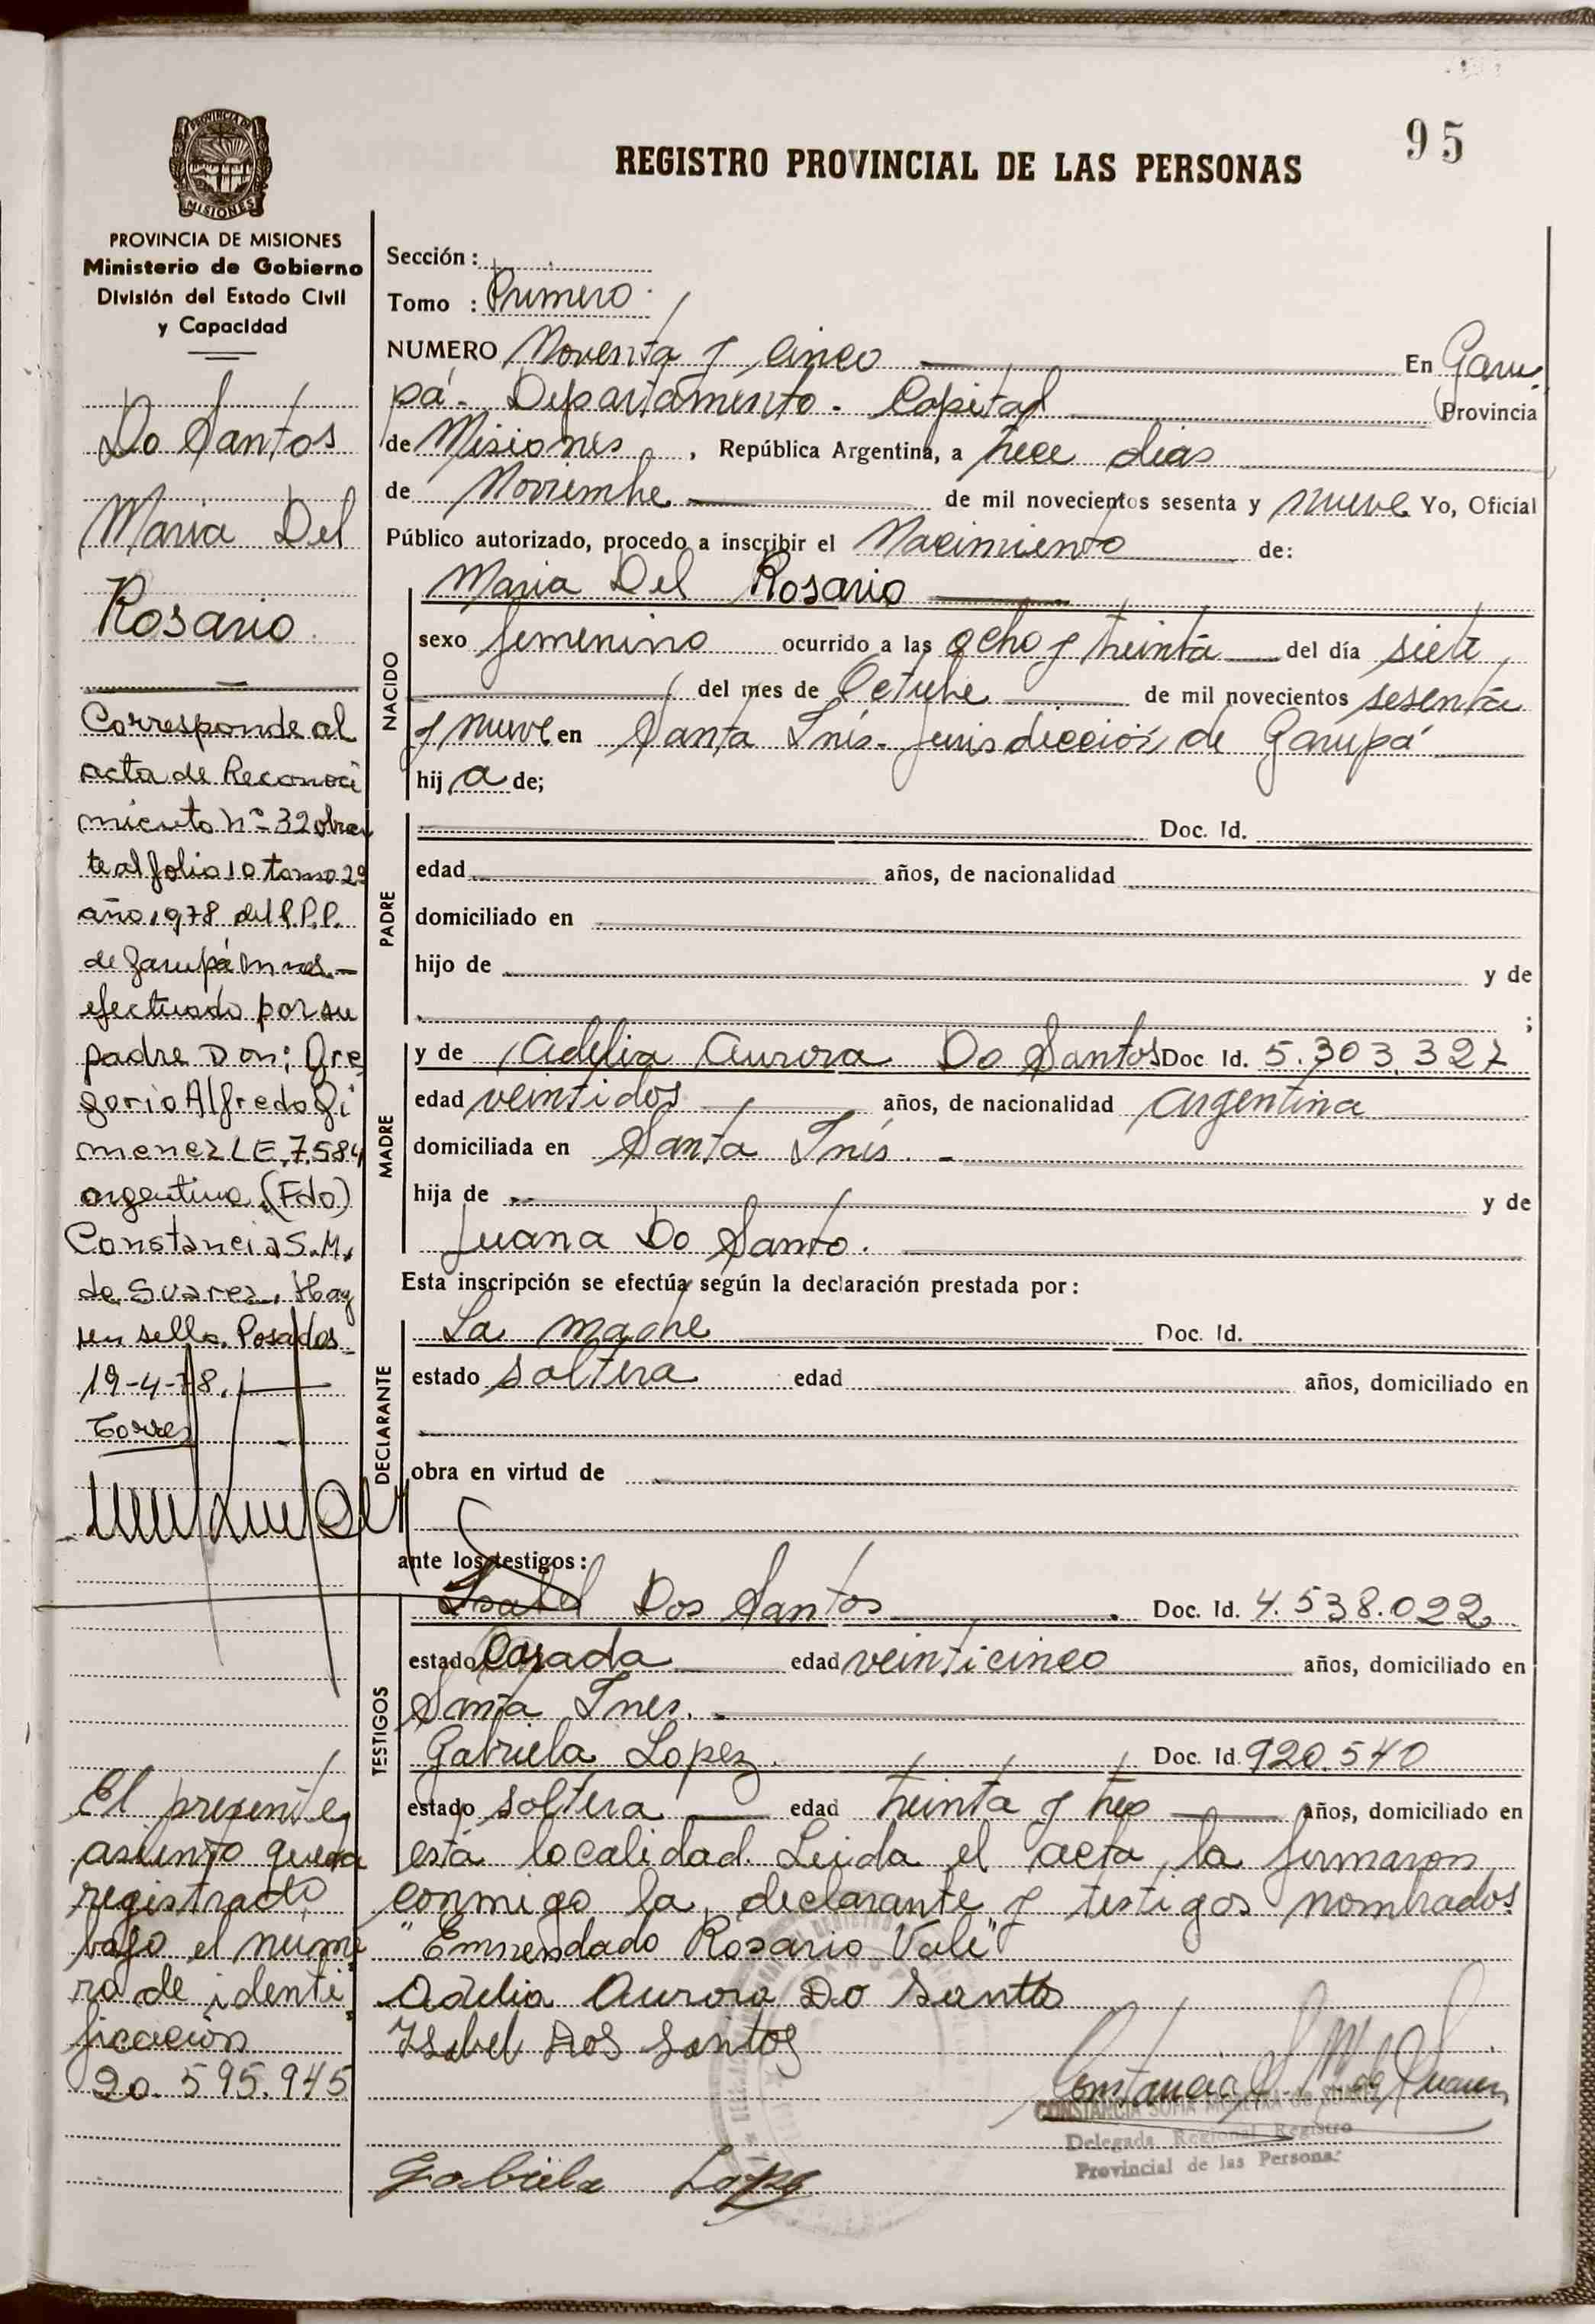 95
REGISTRO PROVINCIAL DE LAS PERSONAS
PROVINCIA DE
MISIONES
PROVINCIA DE MISIONES
Ministerio de Gobierno
División del Estado Civil
y Capacidad
Do Santos
Maria Del
Rosario
Corresponde al
acta de Reconoci
miento Nº 32 obran
te al folio 10 tomo 2º
año 1978 del R.P.P.
de Garupá Mnes.-
efectuado por su
padre Don: Gre
gorio Alfredo Gi
menez L.E. 7.584
argentino (Fdo)
Constancia S.M.
de Suarez. Hay
un sello. Posadas
19-4-78.
Torres
El presente
asiento queda
registrado
bajo el nume
ro de identi
ficación
20.595.945
Sección :
Tomo : Primero.
NUMERO Noventa y cinco En Garu
pá. Departamento. Capital Provincia
de Misiones, República Argentina, a trece dias
de Noviembre de mil novecientos sesenta y nueve Yo, Oficial
Público autorizado, procedo a inscribir el Nacimiento de:
NACIDO
Maria Del Rosario
sexo femenino ocurrido a las ocho y treinta del día siete
del mes de Octubre de mil novecientos sesenta
y nueve en Santa Inés. Jurisdicción de Garupá
hij a de;
PADRE
Doc. Id.
edad años, de nacionalidad
domiciliado en
hijo de y de
;
MADRE
y de Adelia Aurora Do Santos Doc Id. 5.303.327
edad veintidos años, de nacionalidad argentina
domiciliada en Santa Inés. -
hija de y de
Juana Do Santo.
Esta inscripción se efectúa según la declaración prestada por:
DECLARANTE
La madre Doc. Id.
estado soltera edad años, domiciliado en
obra en virtud de
ante los testigos:
TESTIGOS
Isabel Dos Santos Doc. Id. 4.538.022
estado Casada edad veinticinco años, domiciliado en
Santa Ines.
Gabriela Lopez. Doc. Id. 920.540
estado soltera edad treinta y tres años, domiciliado en
esta localidad. Leida el acta, la firmaron
conmigo la declarante y testigos nombrados.
"Enmendado Rosario Vale"
Adelia Aurora Do Santos
Isabel Dos Santos
Constancia S. M. de Suarez
CONSTANCIA SOFIA MOREYRA de SUAREZ
Delegada Regional Registro
Provincial de las Personas
Gabriela Lopez